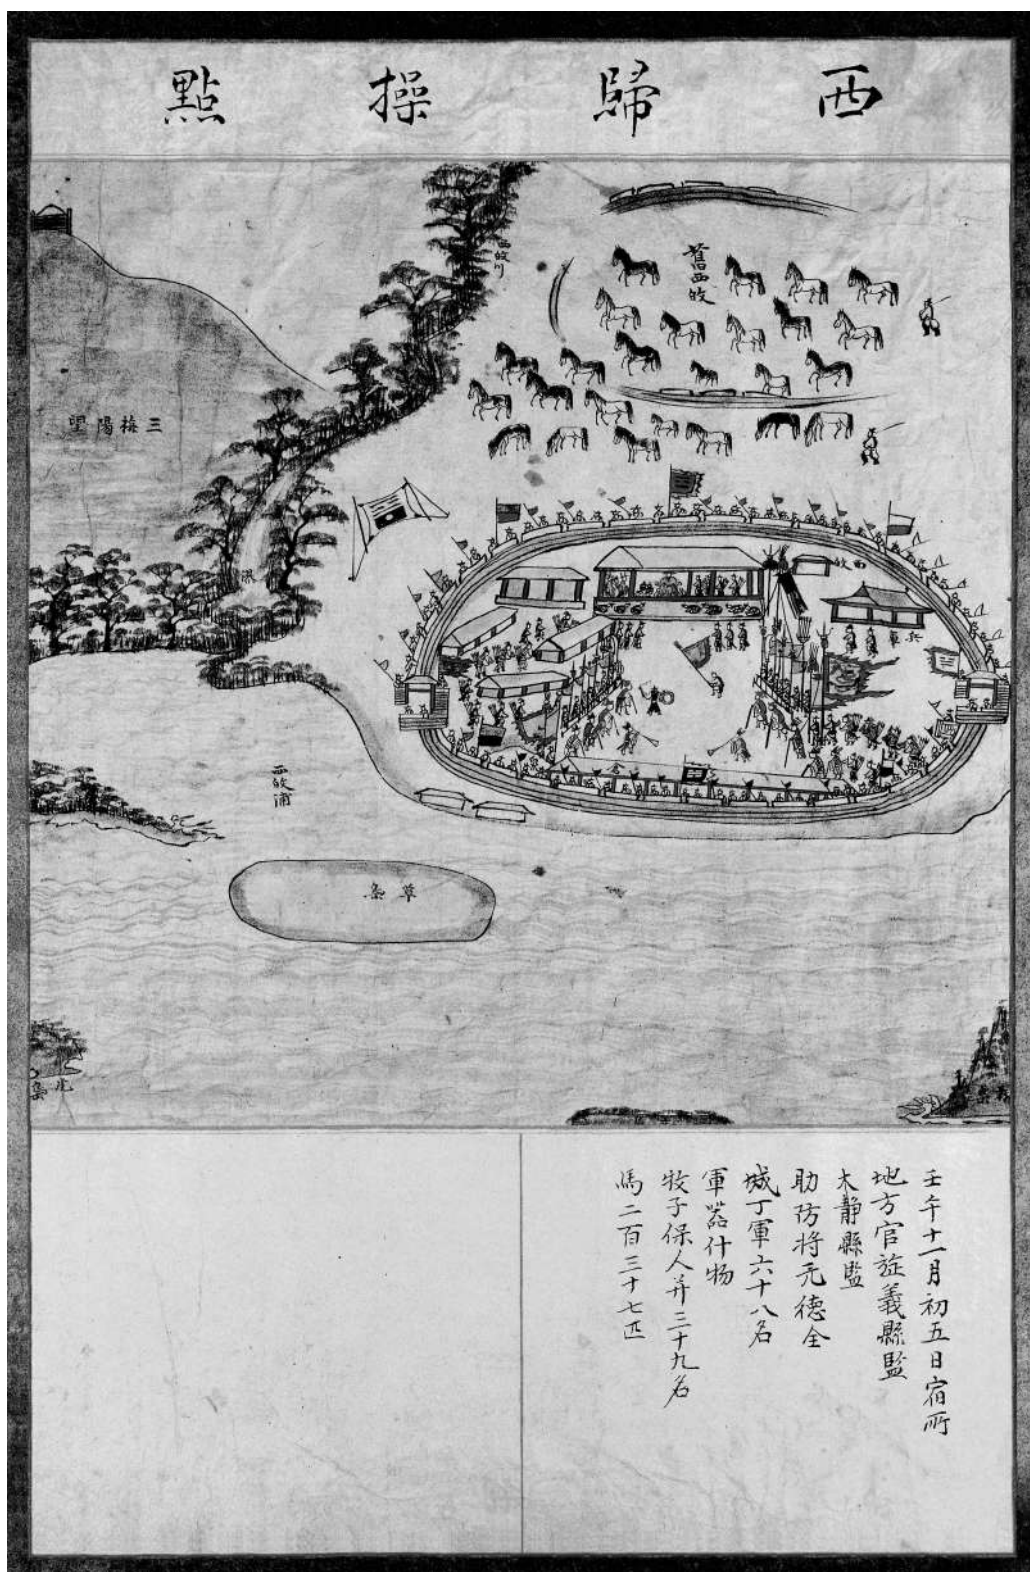 西歸操點
舊西歸
西歸川
三梅陽望
西歸
兵庫
瀑
西歸浦
草島
虎島
壬午十一月初五日宿所
地方官旌義縣監
大靜縣監
助防將元德全
城丁軍六十八名
軍器什物
牧子保人幷三十九名
馬二百三十七匹